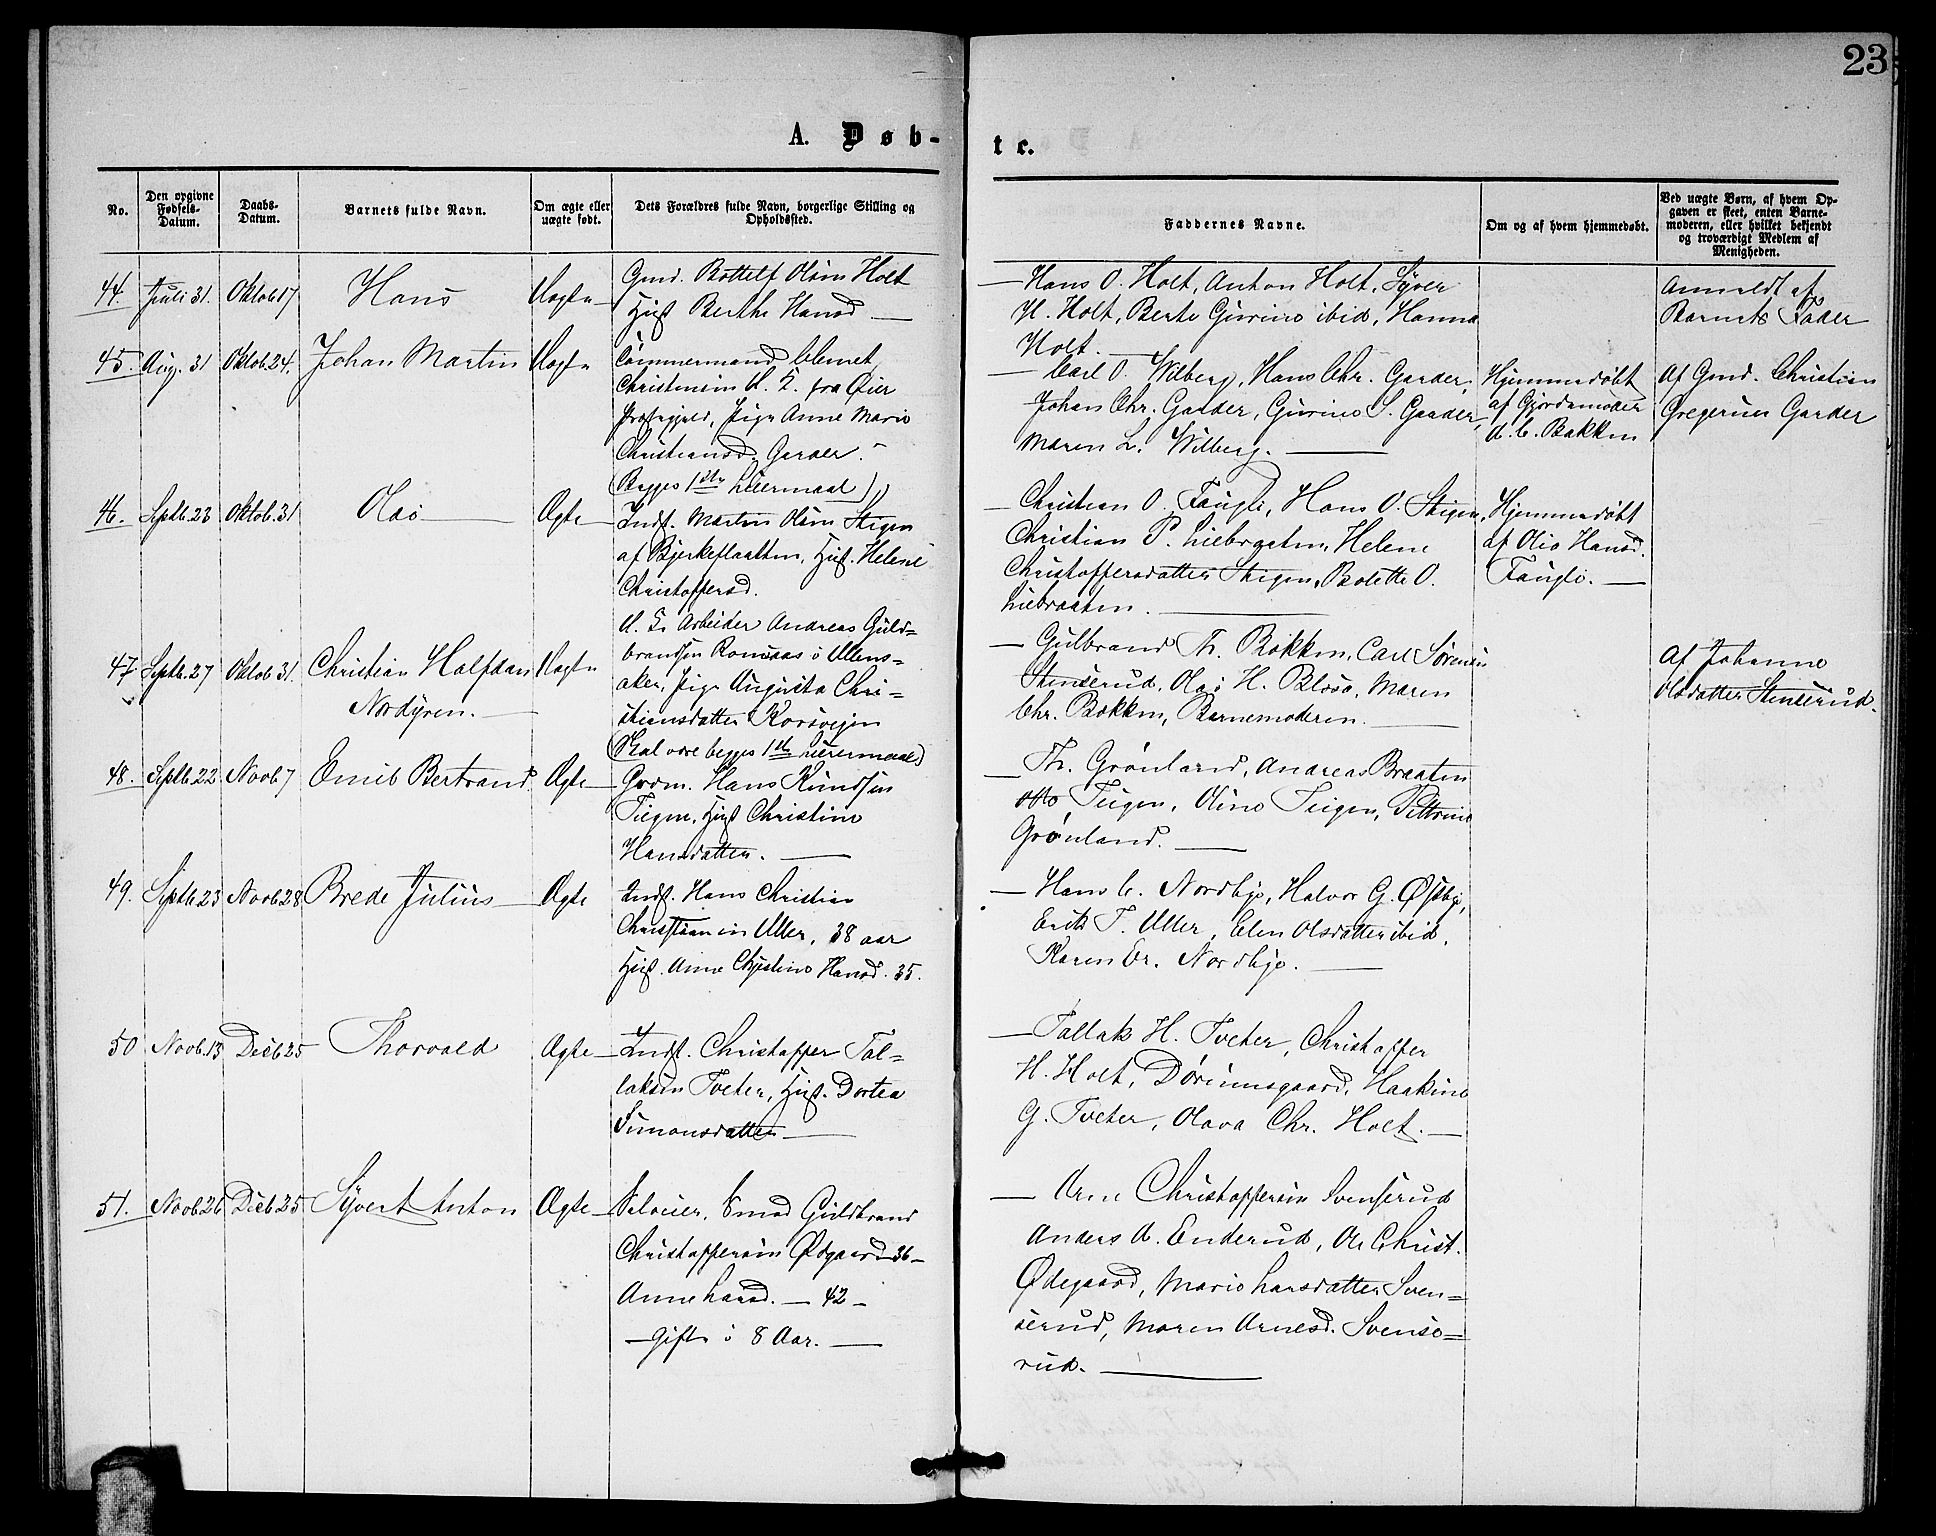 23
A. Døb-
te.
No.
Den opgivne
Fødsels-
Datum.
Daabs-
Datum.
Barnets fulde Navn.
Om ægte eller
uægte født.
Dets Forældres fulde Navn, borgerlige Stilling og
Opholdssted.
Faddernes Navne.
Om og af hvem hjemmedøbt.
Ved uægte Børn, af hvem Op-
gaven er skeet, enten Barne-
moderen, eller hvilket bekjendt
og troværdigt Medlem af
Menigheden.
44. Juli 31. Oktob 17 Hans Uægte
Gmd. Bottelf Olsen Holt
Hust Berthe Hansd
Hans O. Holt, Anton Holt, Syver
H. Holt, Berte Gurine ibid, Hanna
Holt.
Anmeldt af
Barnets Fader
45. Aug. 31 Oktob. 24. Johan Martin Uægte
Tømmermand Clemet
Christensen U. K. fra Øier
Præstegjeld, Pige Anne Marie
Christiansd. Garder.
(Begges 1ste Leiermaal)
Carl O. Wilberg, Hans Chr. Garder,
Johan Chr. Garder, Gurine S. Garder,
Maren L. Wilberg.
Hjemmedøbt
af Gjordemoder
A. C. Bakken
Af Gmd. Christian
Gregersen Garder
46. Septb. 23 Oktob. 31 Olai Ægte
Indst. Martin Olsen Stigen
af Bjerkeflaatten, Hust. Helene
Christoffersd.
Christian O. Faugli, Hans O. Stigen,
Christian P. Liebraaten, Helene
Christoffersdatter Stigen, Bolette O.
Liebraaten.
Hjemmedøbt
af Olia Hansd.
Faugli.
47 Septb. 27 Oktob 31. Christian Halfdan
Nordgren. Uægte
U. K. Arbeider Andreas Guld-
brandsen Romsaas i Ullens-
aker, Pige Augusta Chri-
stiansdatter Korsvejen
(Skal være begges 1ste Leiermaal)
Gulbrand Th. Bakken, Carl Sørensen
Stenserud, Olai H. Blesa, Maren
Chr. Bakken, Barnemoderen.
Af Johanne
Olsdatter Stenserud.
48. Septb. 22 Novb 7 Emil Bertrand Ægte
Grdm. Hans Knudsen
Teigen, Hust Christine
Hansdatter.
Th. Grønland, Andreas Braaten
Otto Teigen, Oline Teigen, Pettrine
Grønland.
49. Septb. 23 Novb. 28 Brede Julius Ægte
Indst. Hans Christian
Christiansen Uller, 38 aar
Hust. Anne Christine Hansd. 35.
Hans C. Nordbye, Halvor G. Østbye,
Erik T. Uller, Elen Olsdatter ibid,
Karen Er. Nordbye.
50 Novb. 13 Decb 25 Thorvald Ægte
Indst. Christoffer Tal-
laksen Tveter, Hust. Dortea
Simonsdatter
Tallak H. Tveter, Christoffer
H. Holt, Haakine
G. Tveter, Olava Chr. Holt.
51. Novb. 26 Decb 25 Syvert Anton Ægte
Selveier, Smed Guldbrand
Christoffersen Ødgaard 36
Anne Larsd. 42
gifte i 8 Aar.
Arne Christoffersen Svenserud
Anders A. Enderud, Ole Christ.
Ødegaard, Marie Larsdatter Sven-
serud, Maren Arnesd. Svense-
rud.